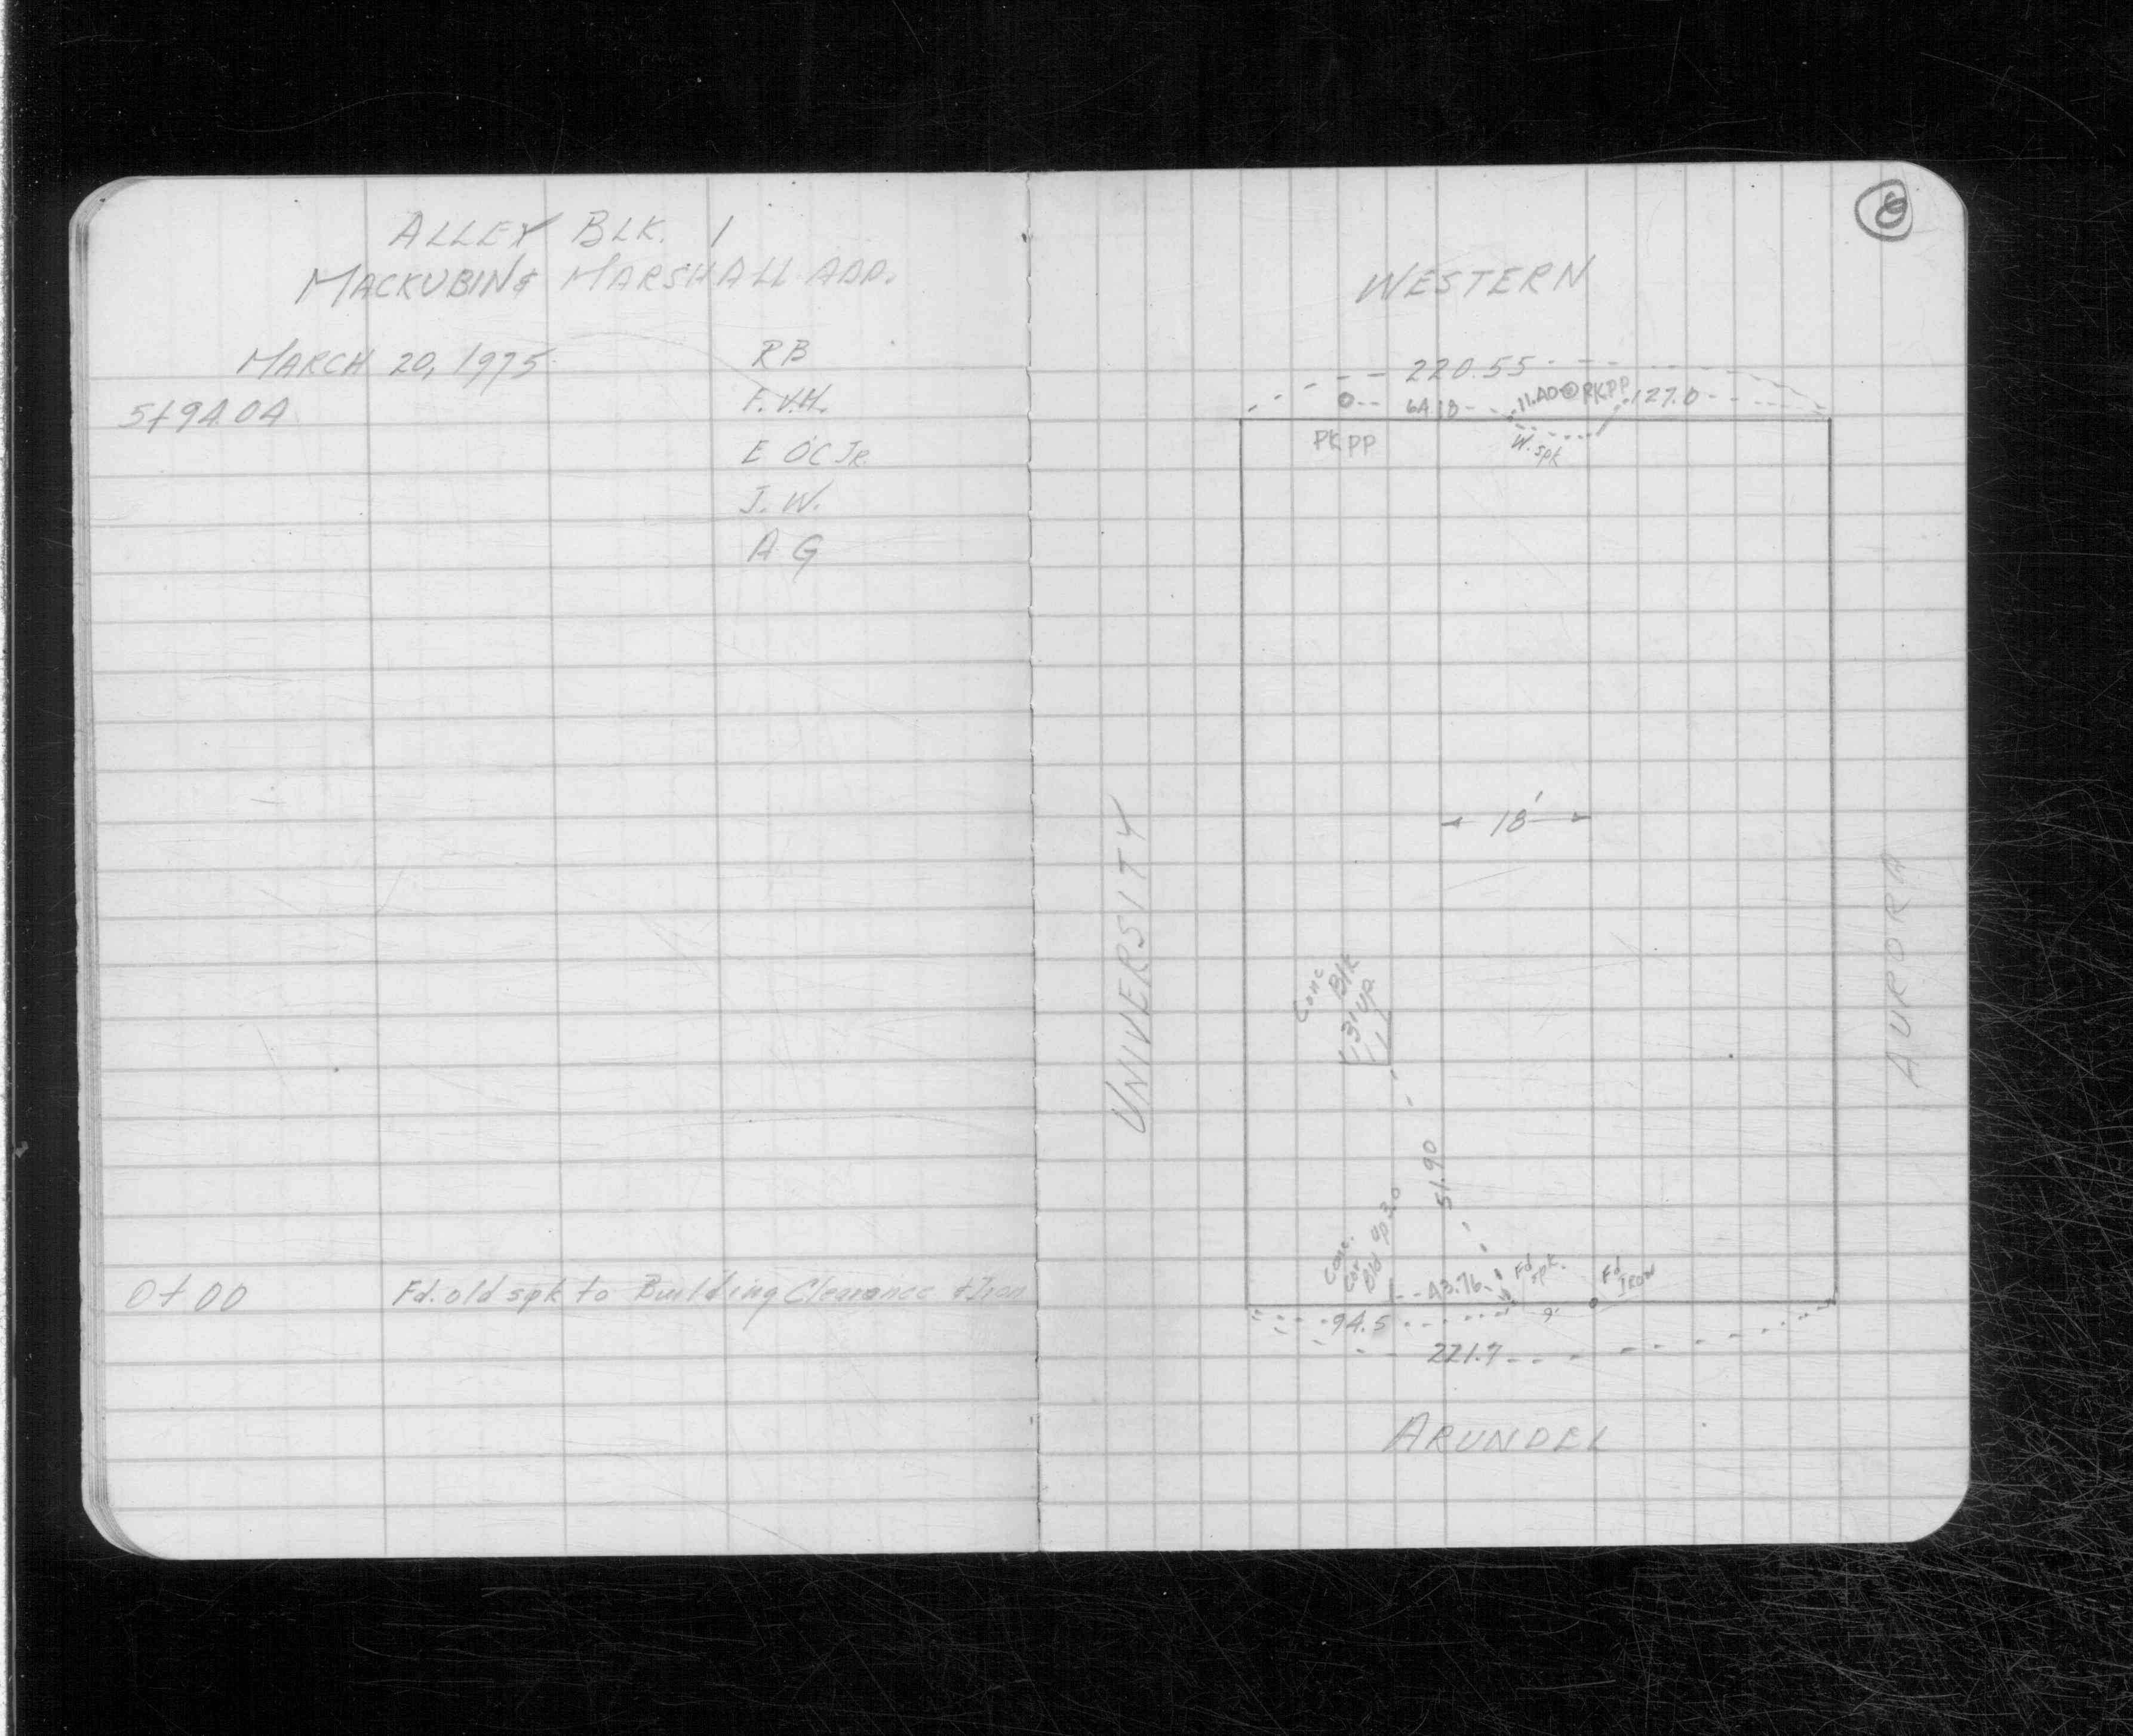 ALLEY BLK. 1
MACKUBIN & MARSHALL ADD.
MARCH 20, 1975
RB
5+94.04
F.V.H.
E O'C JR.
J. W.
A G
0+00 Fd. old spk to Building Clearance & Iron
6
WESTERN
220.55
64.10
11.40 @ PKPP
127.0
PKPP
W. spk
18'
UNIVERSITY
AURORA
Conc
Blk
3' up
51.90
Conc.
Cor.
Bld up 3.0
43.76
Fd. spk.
Fd IRON
94.5
9'
221.7
ARUNDEL